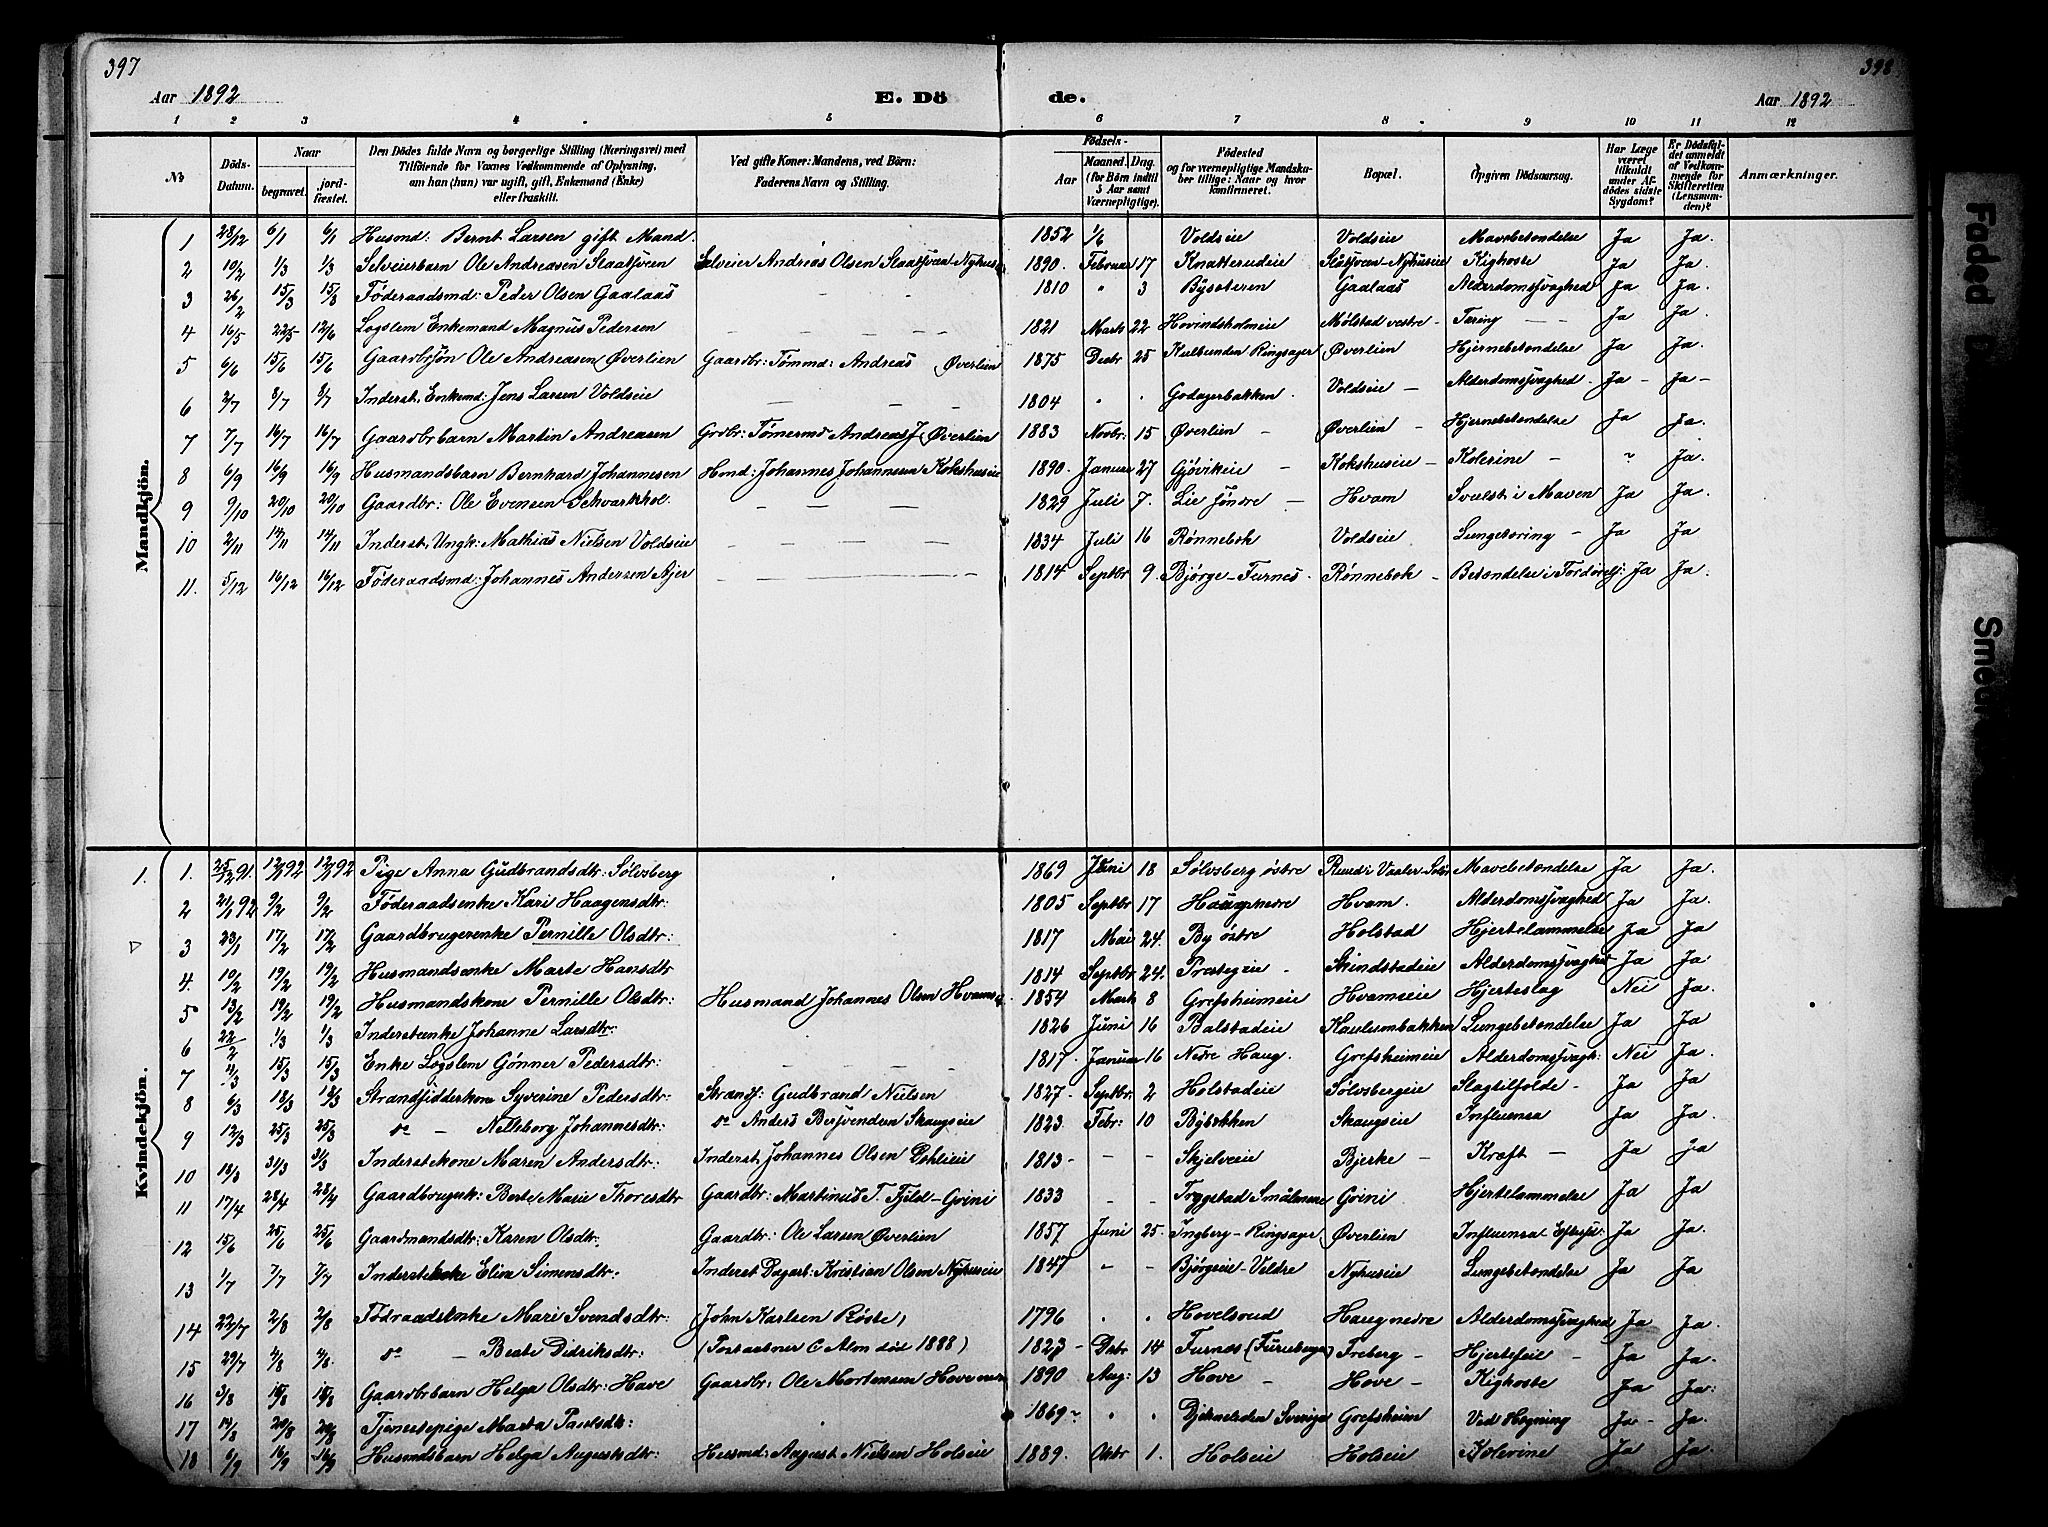 397
398
Aar 1892
E. Dö
de.
Aar 1892
1 2 3 4 5 6 7 8 9 10 11 12
No
Döds-Datum.
Naar
begravet.
jordfæstet.
Den Dödes fulde Navn og borgerlige Stilling (Næringsvei) med Tilföiende for Voxnes Vedkommende af Oplysning, om han (hun) var ugift, gift, Enkemand (Enke) eller fraskilt.
Ved gifte Koner: Mandens, ved Börn: Faderens Navn og Stilling.
Födsels-
Aar
Maaned. Dag.
(for Börn indtil 5 Aar samt Værnepligtige).
Födested og for værnepligtige Mandskaber tillige: Naar og hvor konfirmeret.
Bopæl.
Opgiven Dödsaarsag.
Har Læge været tilkaldt under Afdödes sidste Sygdom?
Er Dödsfaldet anmeldt af Vedkommende for Skifteretten (Lensmanden)?
Anmærkninger.
Mandkjön.
1 28/12 6/1 6/1 Husmd: Bernt Larsen gift Mand. 1852 1/6 Voldseie Voldseie Mavebetændelse Ja Ja.
2 10/2 1/3 1/3 Selveierbarn Ole Andreasen Slaatsveen Selveier Andreas Olsen Slaatsveen Nyhus 1890. Februar 17 Knatterudeie Slaatsveen-Nyhuseie Kighoste Ja Ja.
3 26/2 15/3 15/3 Föderaadsmd: Peder Olsen Gaalaas 1810 " 3 Bysæteren Gaalaas Alderdomssvaghed Ja Ja
4 16/5 22/5 12/6 Logslem Enkemand Magnus Pedersen 1821 Marts 22 Hovindsholmeie Mølstad vestre Tæring Ja Ja
5 6/6 15/6 15/6 Gaardbrsøn Ole Andreasen Øverlien Gaardbr: Tømmd: Andreas Øverlien 1875 Decbr 25 Ringsager Øverlien Hjernebetændelse Ja Ja
6 2/7 8/7 8/7 Inderst, Enkemd: Jens Larsen Voldseie 1804 Godagerbakken Voldseie Alderdomssvaghed. Ja Ja
7 7/7 16/7 16/7 Gaardbrbarn Martin Andreasen Grdbr: Tømermd Andreas J. Øverlien 1883 Novbr: 15 Øverlien Øverlien Hjernebetændelse Ja Ja.
8 6/9 16/9 16/9 Husmandsbarn Bernhard Johannesen Hmd: Johannes Johannesen Kokshuseie 1890. Januar 27 Gjøvikeie Kokshuseie Kolerine Ja.
9 9/10 20/10 20/10 Gaardbr: Ole Evensen Schvarthol. 1829 Juli 7. Lie søndre Hvam Svulst i Maven Ja Ja.
10 2/11 14/11 14/11 Inderst, Ungk: Mathias Nielsen Voldseie 1834 Juli 16 Rønnebæk Voldseie Lungetæring Ja Ja
11. 5/12 16/12 16/12 Föderaadsmd: Johannes Andersen Ajer 1814 Septbr 9. Bjørge-Furnes. Rønnebæk Betændelse i Ja Ja.
Kvindekjön.
1. 1. 25/12 91 12/2 92 12/2 92 Pige Anna Gudbrandsdtr: Sølvsberg 1869 Juni 18 Sølvsberg østre Mavebetændelse Ja Ja
2 20/1 92 9/2 9/2 Föderaadsenke Kari Haagensdtr: 1805 Septbr 17 Hvam. Alderdomssvaghed Ja Ja.
3 23/1 17/2 17/2 Gaardbrugerenke Pernille Olsdtr: 1817 Mai 24. By østre Holstad Hjertelammelse Ja Ja
4. 10/2 19/2 19/2 Husmandsenke Marte Hansdtr 1814 Septbr 24. Præstegeie Skindstadeie Alderdomssvaghed Ja Ja
5 13/2 19/2 19/2 Husmandskone Pernille Olsdtr: Husmand Johannes Olsen Hvamseie 1854 Marts 8 Grefsheimeie Hvamseie Hjerteslag Nei Ja.
6 22/2 1/3 1/3 Inderstenke Johanne Larsdtr: 1826 Juni 16 Balstadeie Kaulumbakken Lungebetændelse Ja Ja
7 4/3 15/3 15/3 Enke Logslem Gønner Pedersdtr: 1817. Januar 16 Nedre Haug. Grefsheimeie Alderdomssvagh: Nei Ja.
8 6/3 18/3 18/3 Strandsidderkone Syverine Pedersdtr: Strands: Gudbrand Nielsen 1827 Septbr. 2 Holstadeie Sølvsbergeie Slagtilfælde Ja Ja
9 12/3 25/3 25/3 do Nilleborg Johannesdtr: do Anders Skaugseie 1823. Febr: 10 Bybækken Skaugseie Influensa Ja Ja.
10 18/3 31/3 31/3 Inderstekone Maren Andersdtr: Inderst Johannes Olsen Dehlieie 1813 Skjelveie Bjerke Kræft Ja Ja
11 17/4 28/4 28/4 Gaardbrugersk: Berte Marie Thoresdtr Gaardbr: Martinus T. Fjeld-Grini 1833 Trygstad Smålenene Grini Hjertelammelse Ja Ja
12 15/6 25/6 25/6 Gaardmandsdtr: Karen Olsdtr. Gaardbr: Ole Larsen Øverlien 1857 Juni 25. Ingberg-Ringsager Øverlien Influensa Ja Ja.
13 1/7 7/7 7/7 Inderstekone Elise Simensdtr: Inderst Dagarb: Kristian Olsen Nyhuseie 1847 Bjørgeie-Veldre Nyhuseie Lungebetændelse Ja Ja
14 22/7 2/8 2/8 Födraadsenke Mari Svendsdtr: (John Karlsen Røste) 1796 Hovelsrud Haug nedre Alderdomssvaghed Ja Ja.
15 29/7 4/8 4/8 do Beate Didriksdtr: (Postaabner C Alm död 1888) 1823 Decbr 14 Furnæs (Furuberget) Freberg Hjertefeil Ja Ja.
16 3/8 18/8 18/8 Gaardbrbarn Helga Olsdtr: Hove Gaardbr: Ole Mortensen Hove 1890 Aug: 13 Hove Hove Kighoste Ja Ja:
17 14/8 20/8 20/8 Tjenestepige Marta Paulsdtr: 1869 Sverige Grefsheim Ved Hægning Ja Ja.
18 6/9 16/9 16/9 Husmdsbarn Helga Augustsdtr: Husmd: August Nielsen Holseie 1889. Octbr 1. Holseie Holseie Kolerine Ja Ja.
Faded